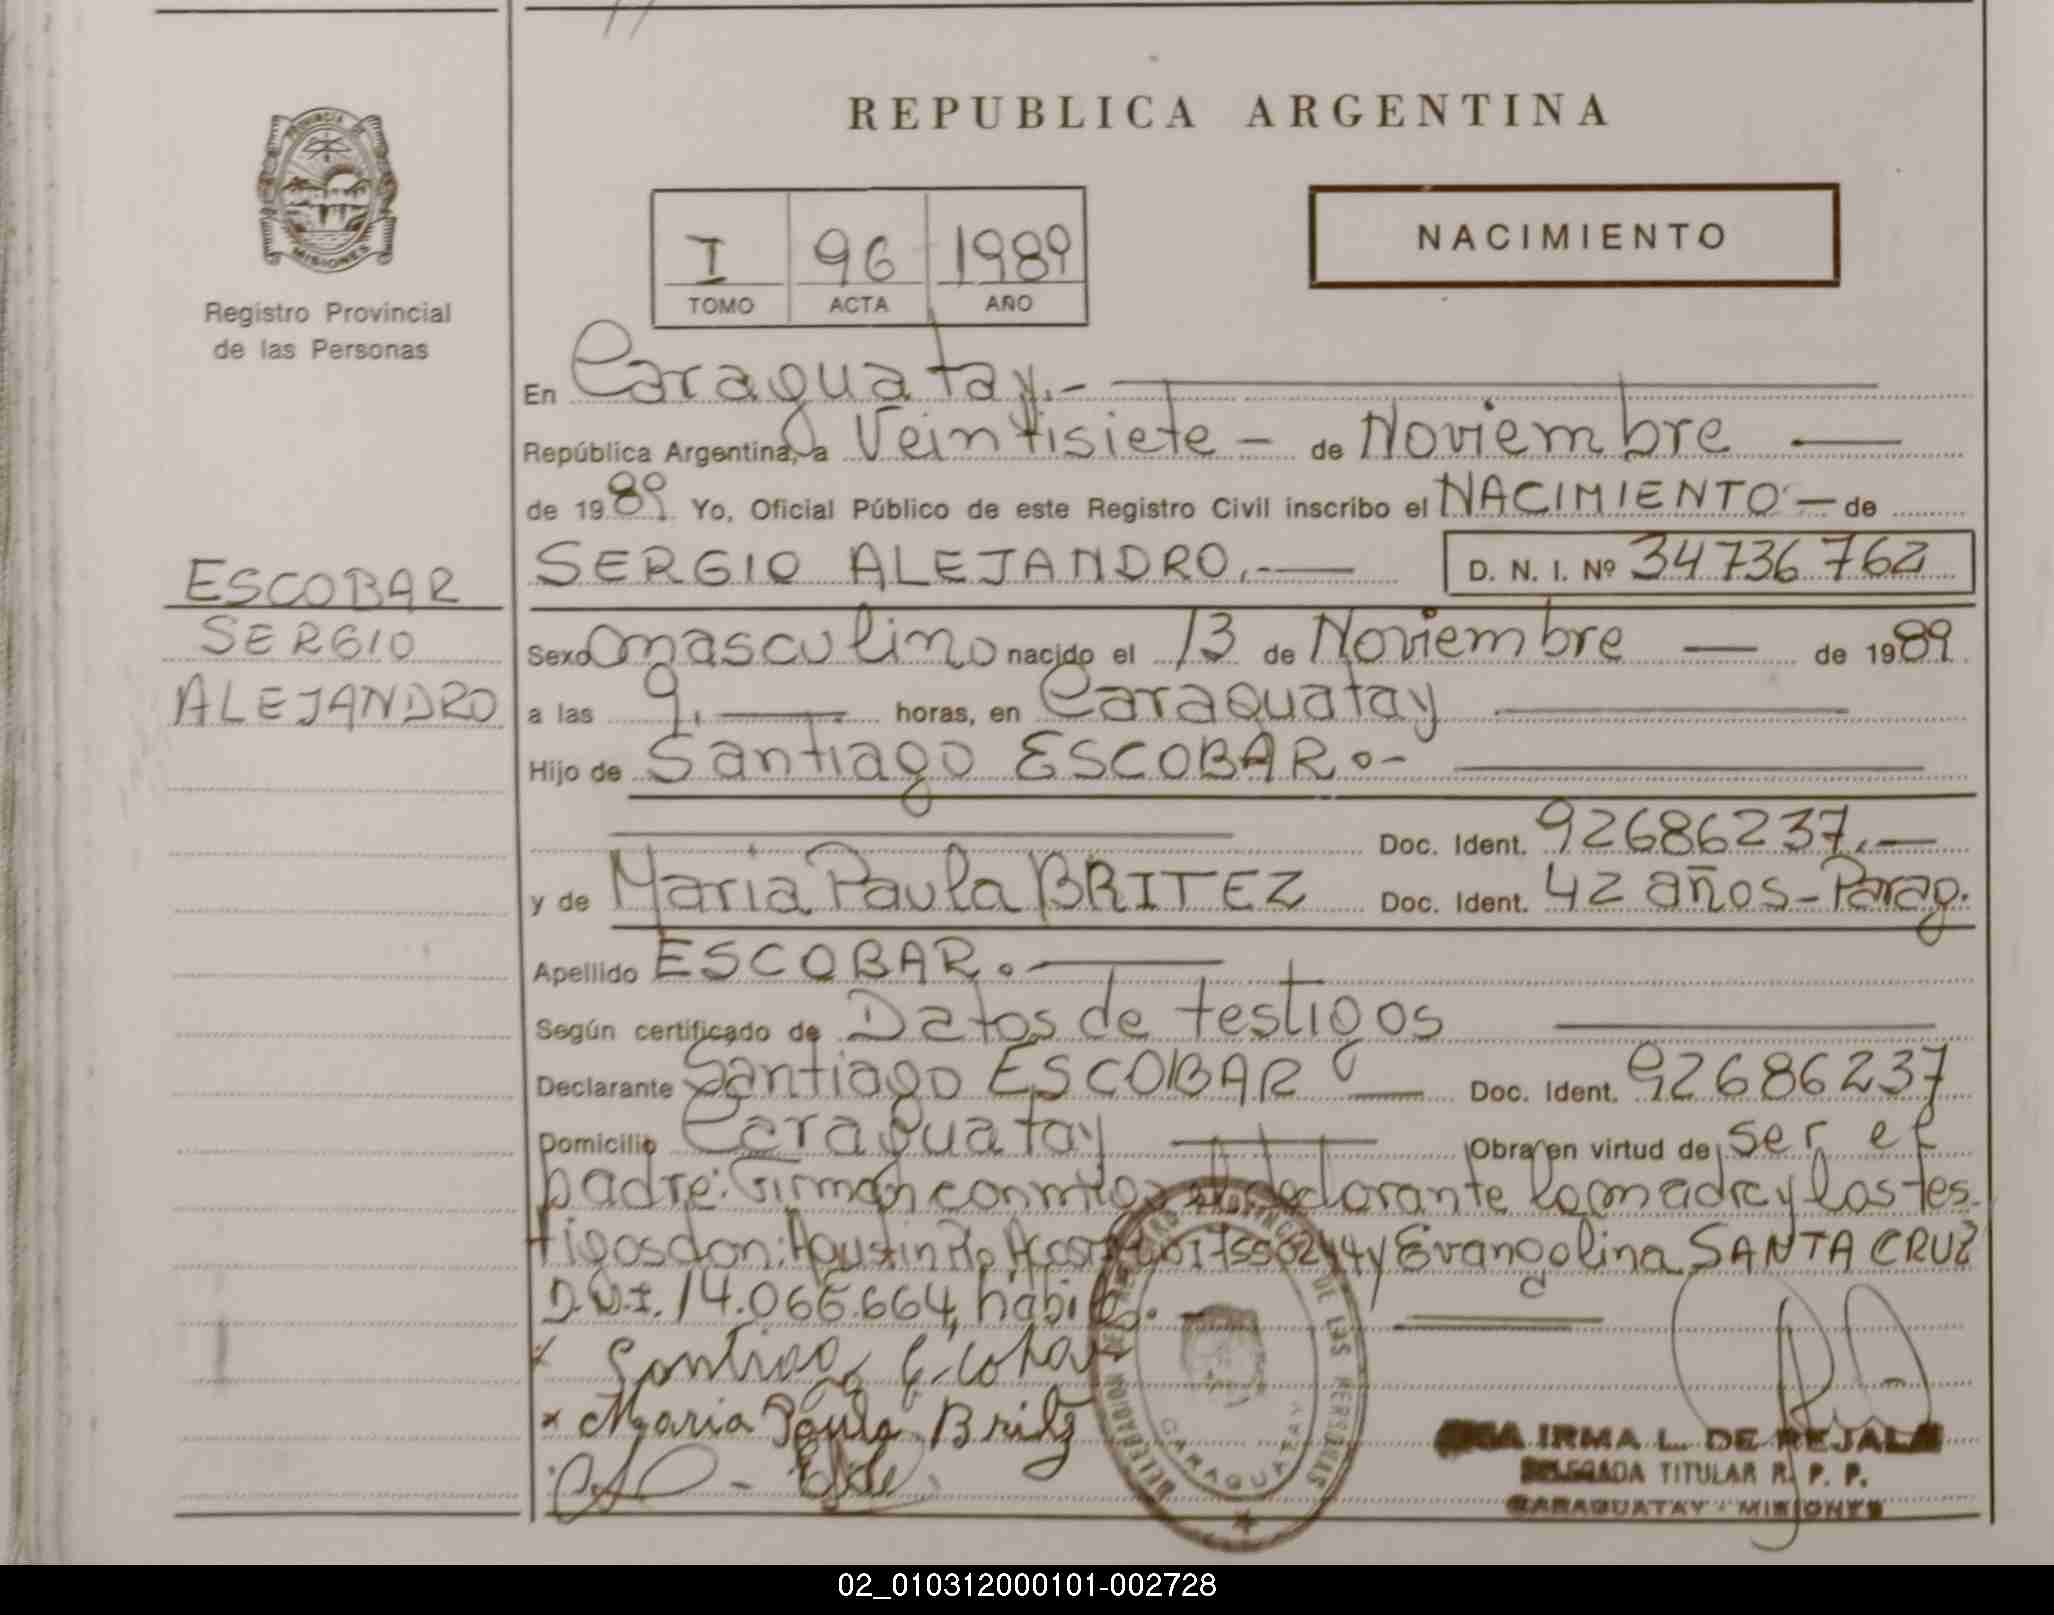 REPUBLICA ARGENTINA
PROVINCIA DE MISIONES
Registro Provincial
de las Personas
I 96 1989
TOMO ACTA AÑO
NACIMIENTO
En Caraguatay.-
República Argentina, a Veintisiete - de Noviembre
de 1989 Yo, Oficial Público de este Registro Civil inscribo el NACIMIENTO - de
SERGIO ALEJANDRO.- D. N. I. Nº 34736762
ESCOBAR
SERGIO
ALEJANDRO
Sexo masculino nacido el 13 de Noviembre de 1989
a las 9. horas, en Caraguatay
Hijo de Santiago ESCOBAR.-
Doc. Ident. 92686237.-
y de Maria Paula BRITEZ Doc. Ident. 42 años-Parag.
Apellido ESCOBAR.
Según certificado de Datos de testigos
Declarante Santiago ESCOBAR Doc. Ident. 92686237
Domicilio Caraguatay Obra en virtud de ser el
padre. Firman conmigo el declarante la madre y los tes
tigos don: Agustin y Evangelina SANTA CRUZ
D.N.I. 14.066.664, habiles.
Santiago Escobar
x Maria Paula Britz
DELEGACION DEL REGISTRO PROVINCIAL DE LAS PERSONAS
CARAGUATAY
IRMA L. DE REJALA
DELEGADA TITULAR R. P. P.
CARAGUATAY - MISIONES
02_010312000101-002728